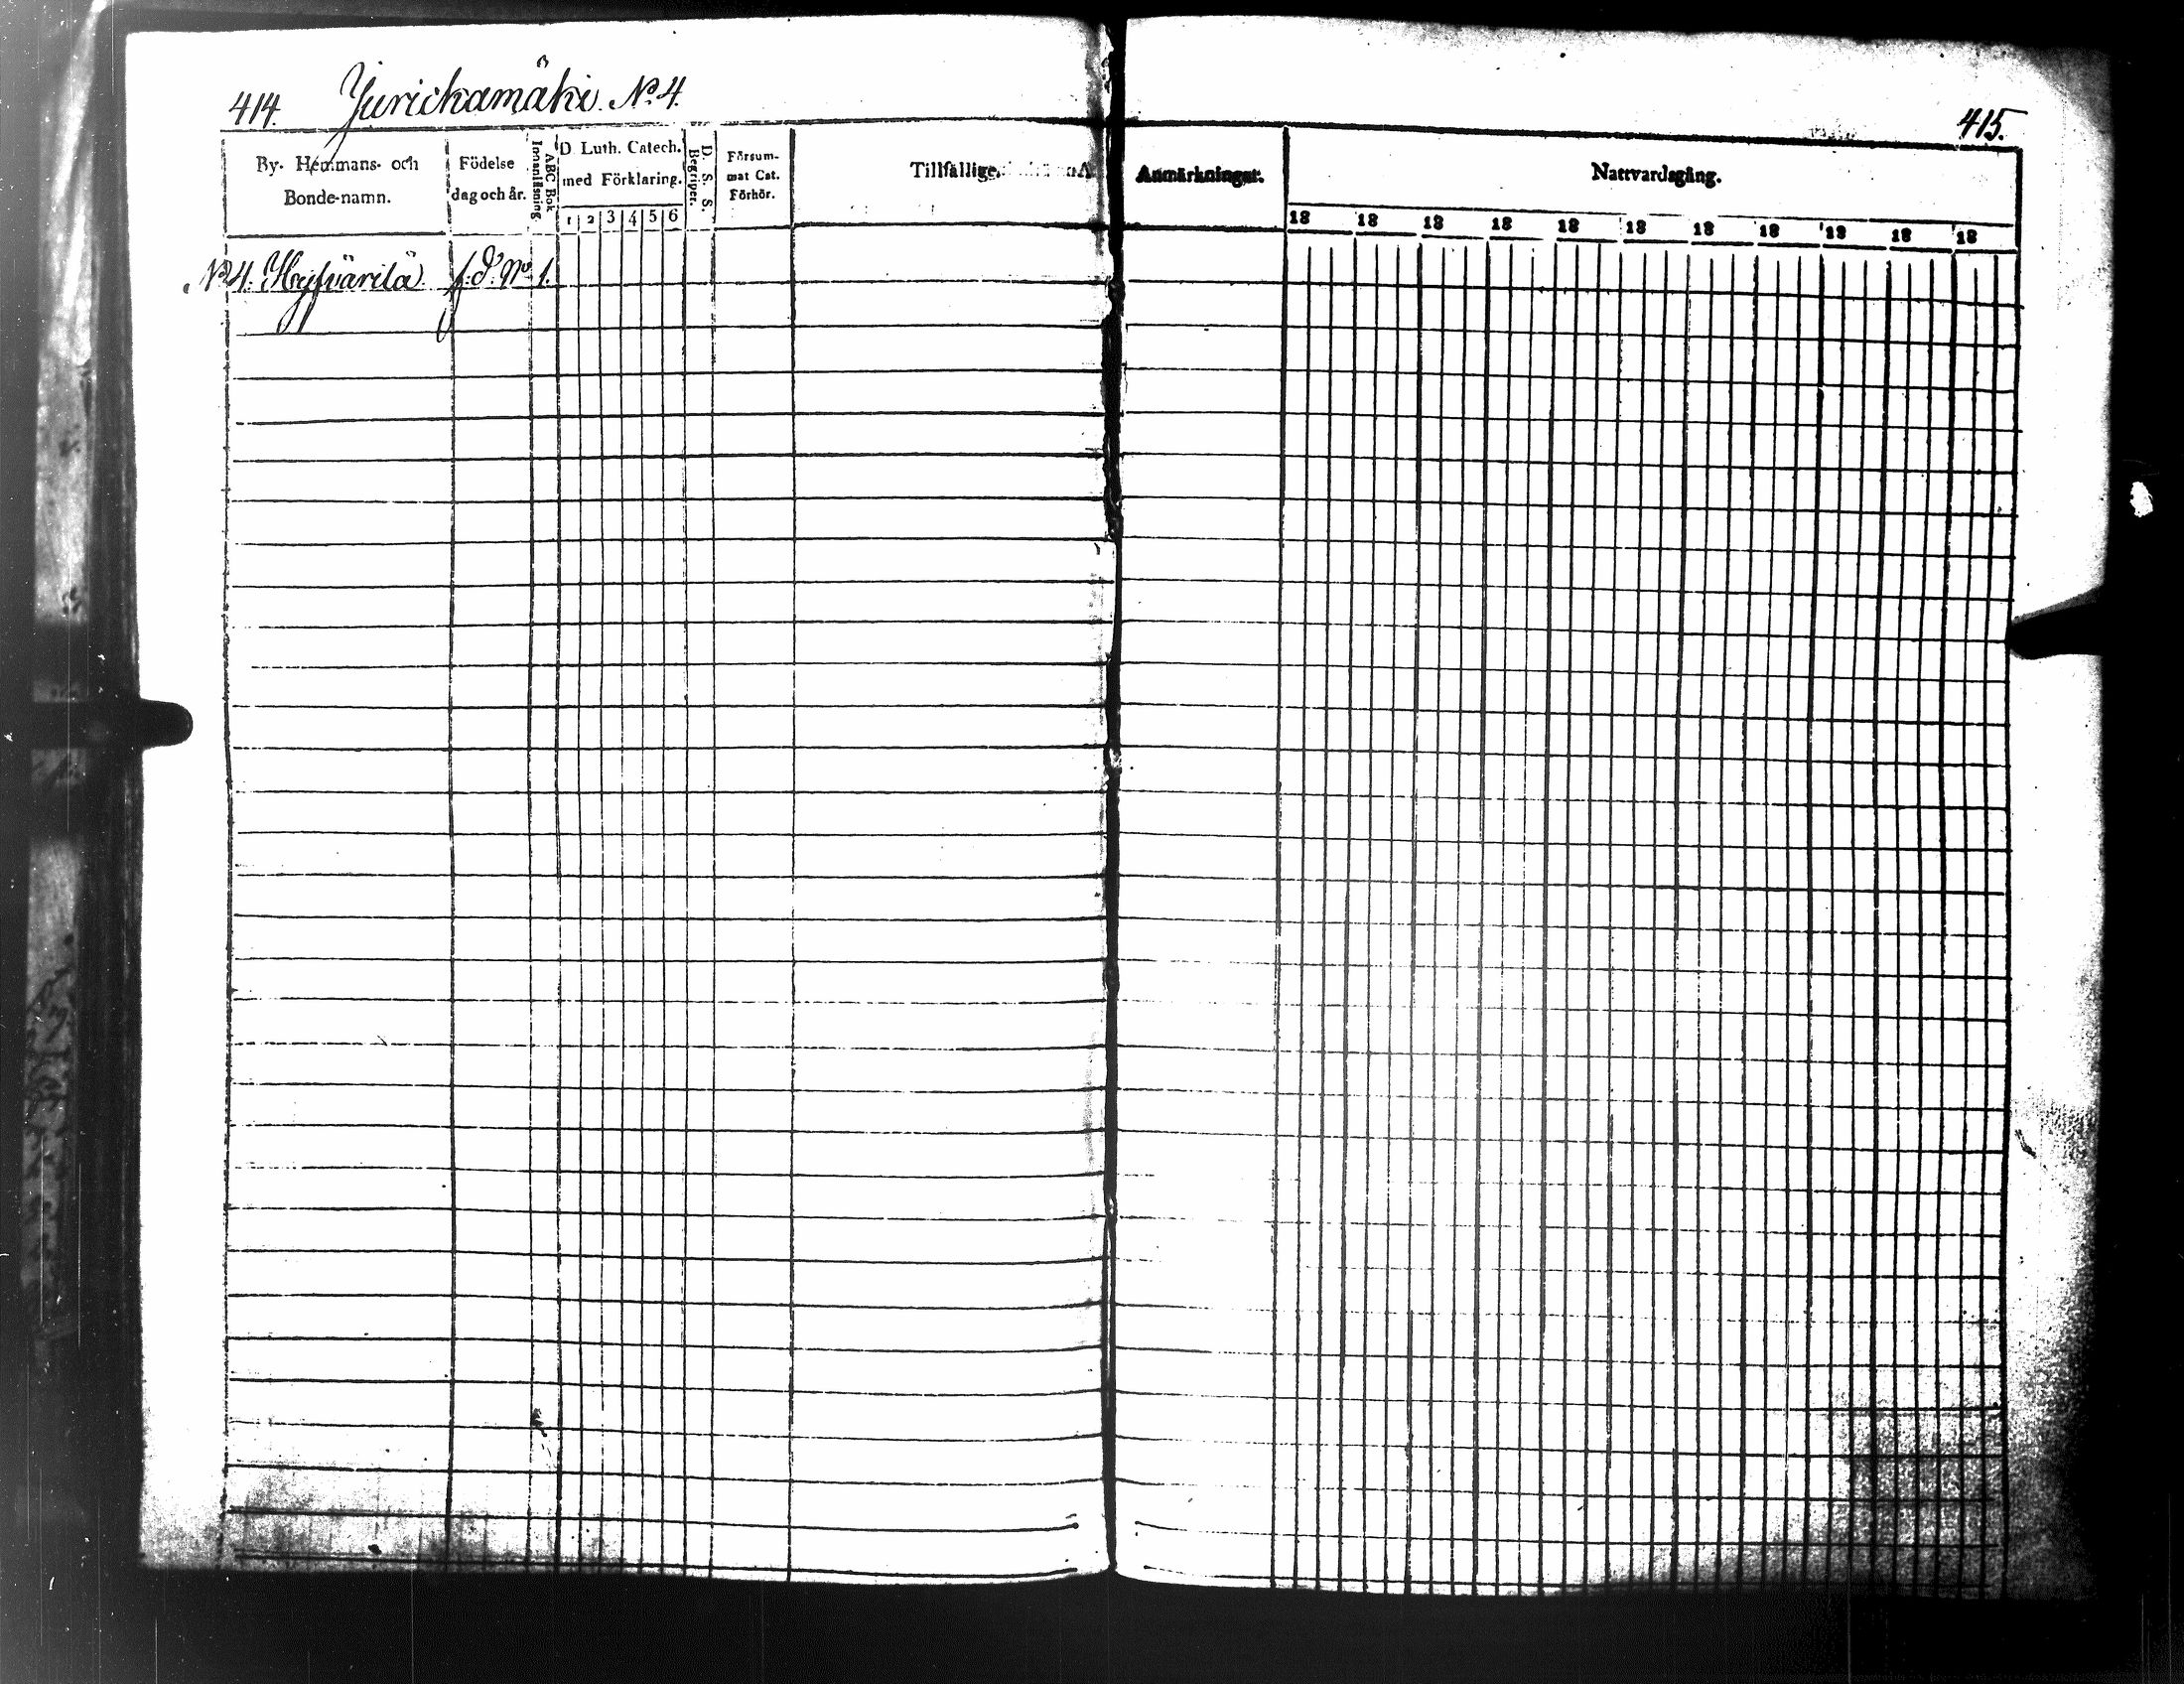 414. Jurickamäki. No. 4.
415.
By- Hemmans- och Bonde-namn.
Födelse dag och år.
ABC Bok Innanläsning
D Luth. Catech. med Förklaring.
1 2 3 4 5 6
D. S. S. Begriper.
Försum- mat Cat. Förhör.
Tillfällige
Anmärkningar.
Nattvardsgång.
18 18 18 18 18 18 18 18 18 18 18
No 4. Hyfvärilä. f. d. No 1.